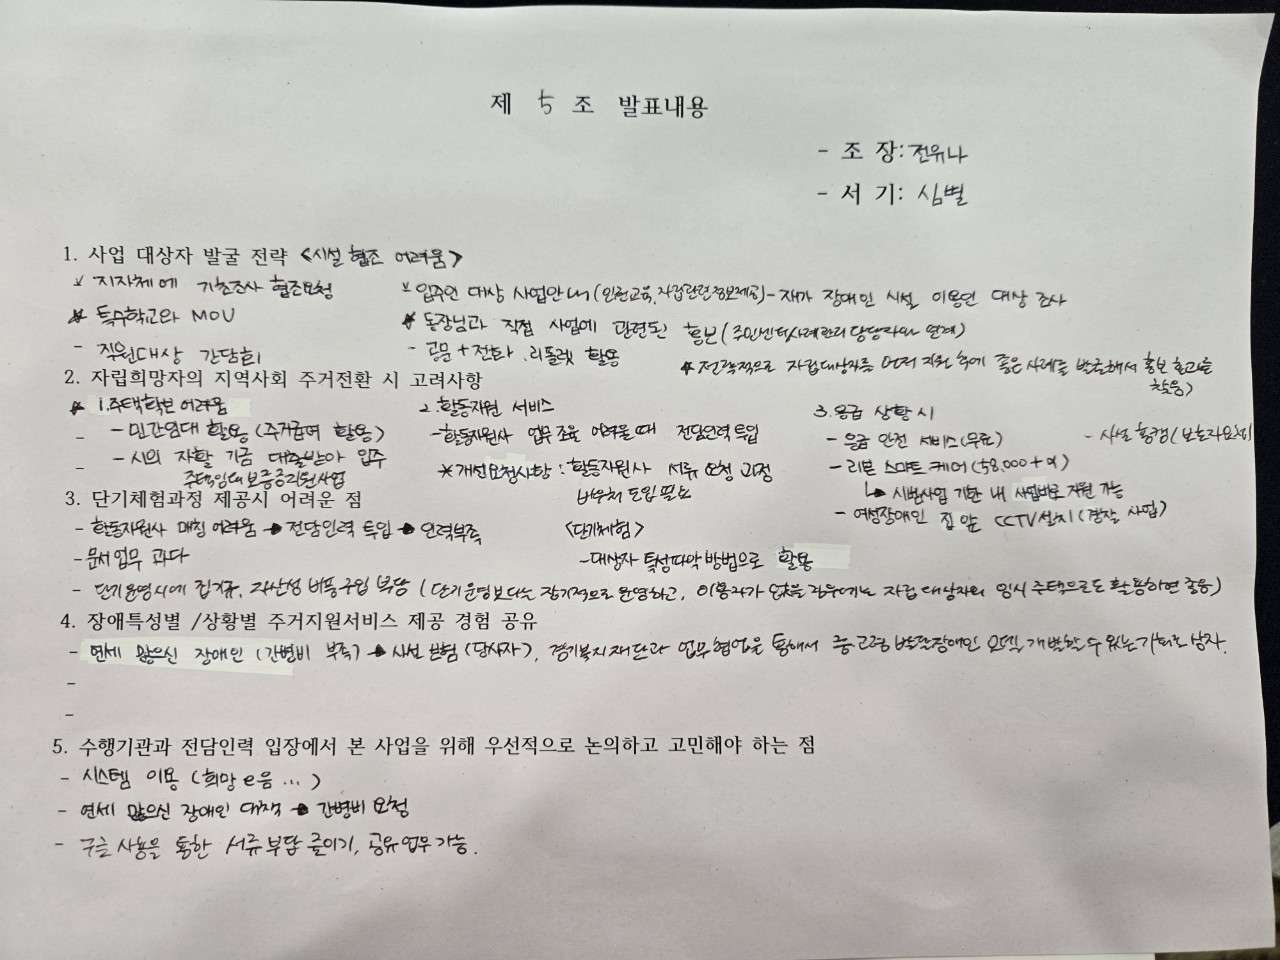 제 5 조 발표내용
- 조 장: 전유나
- 서 기: 심별
1. 사업 대상자 발굴 전략 <시설 협조 어려움>
* 지자체에 기초조사 협조요청
* 입주인 대상 사업안내(인권교육, 자립관련정보제공) - 재가 장애인 시설 이용인 대상 조사
* 특수학교와 MOU
* 동장님과 직접 사업에 관련된 홍보(주민센터사례관리 담당자와 연계)
- 직원대상 간담회
- 공문 + 전화, 리플렛 활용
* 전략적으로 자립대상자를 먼저 지원 후에 좋은 사례를 발굴해서 홍보 효과를 찾음)
2. 자립희망자의 지역사회 주거전환 시 고려사항
* 1. 주택확보 어려움
- 민간임대 활용 (주거급여 활용)
- 시의 자활 기금 대출받아 입주
주택임대보증금지원사업
2. 활동지원 서비스
- 활동지원사 업무 조율 어려울때 전담인력 투입
* 개선요청사항 : 활동지원사 서류 요청 과정
바우처 도입 필요
3. 응급 상황 시
- 응급 안전 서비스(무료)
- 리본 스마트 케어 (58,000+α)
↳ 시범사업 기관 내 사업비로 지원 가능
- 여성장애인 집 앞 CCTV설치 (경찰 사업)
- 시설 환경(보호자요청)
3. 단기체험과정 제공시 어려운 점
- 활동지원사 매칭 어려움 → 전담인력 투입 → 인력부족
- 문서업무 과다
<단기체험>
- 대상자 특성파악 방법으로 활용
- 단기운영시에 집기류, 자산성 비품구입 부담 (단기운영보다는 장기적으로 운영하고, 이용자가 없을 경우에는 자립 대상자의 임시 주택으로도 활용하면 좋음)
4. 장애특성별 /상황별 주거지원서비스 제공 경험 공유
- 연세 많으신 장애인 (간병비 부족) → 사선 보험 (당사자), 경기복지재단과 업무 협업을 통해서 중고령 발달장애인 인식 개선할 수 있는 기회로 삼자.
-
-
5. 수행기관과 전담인력 입장에서 본 사업을 위해 우선적으로 논의하고 고민해야 하는 점
- 시스템 이용 (희망e음 ...)
- 연세 많으신 장애인 대책 → 간병비 요청
- 구글 사용을 통한 서류부담 줄이기, 공유업무 가능.